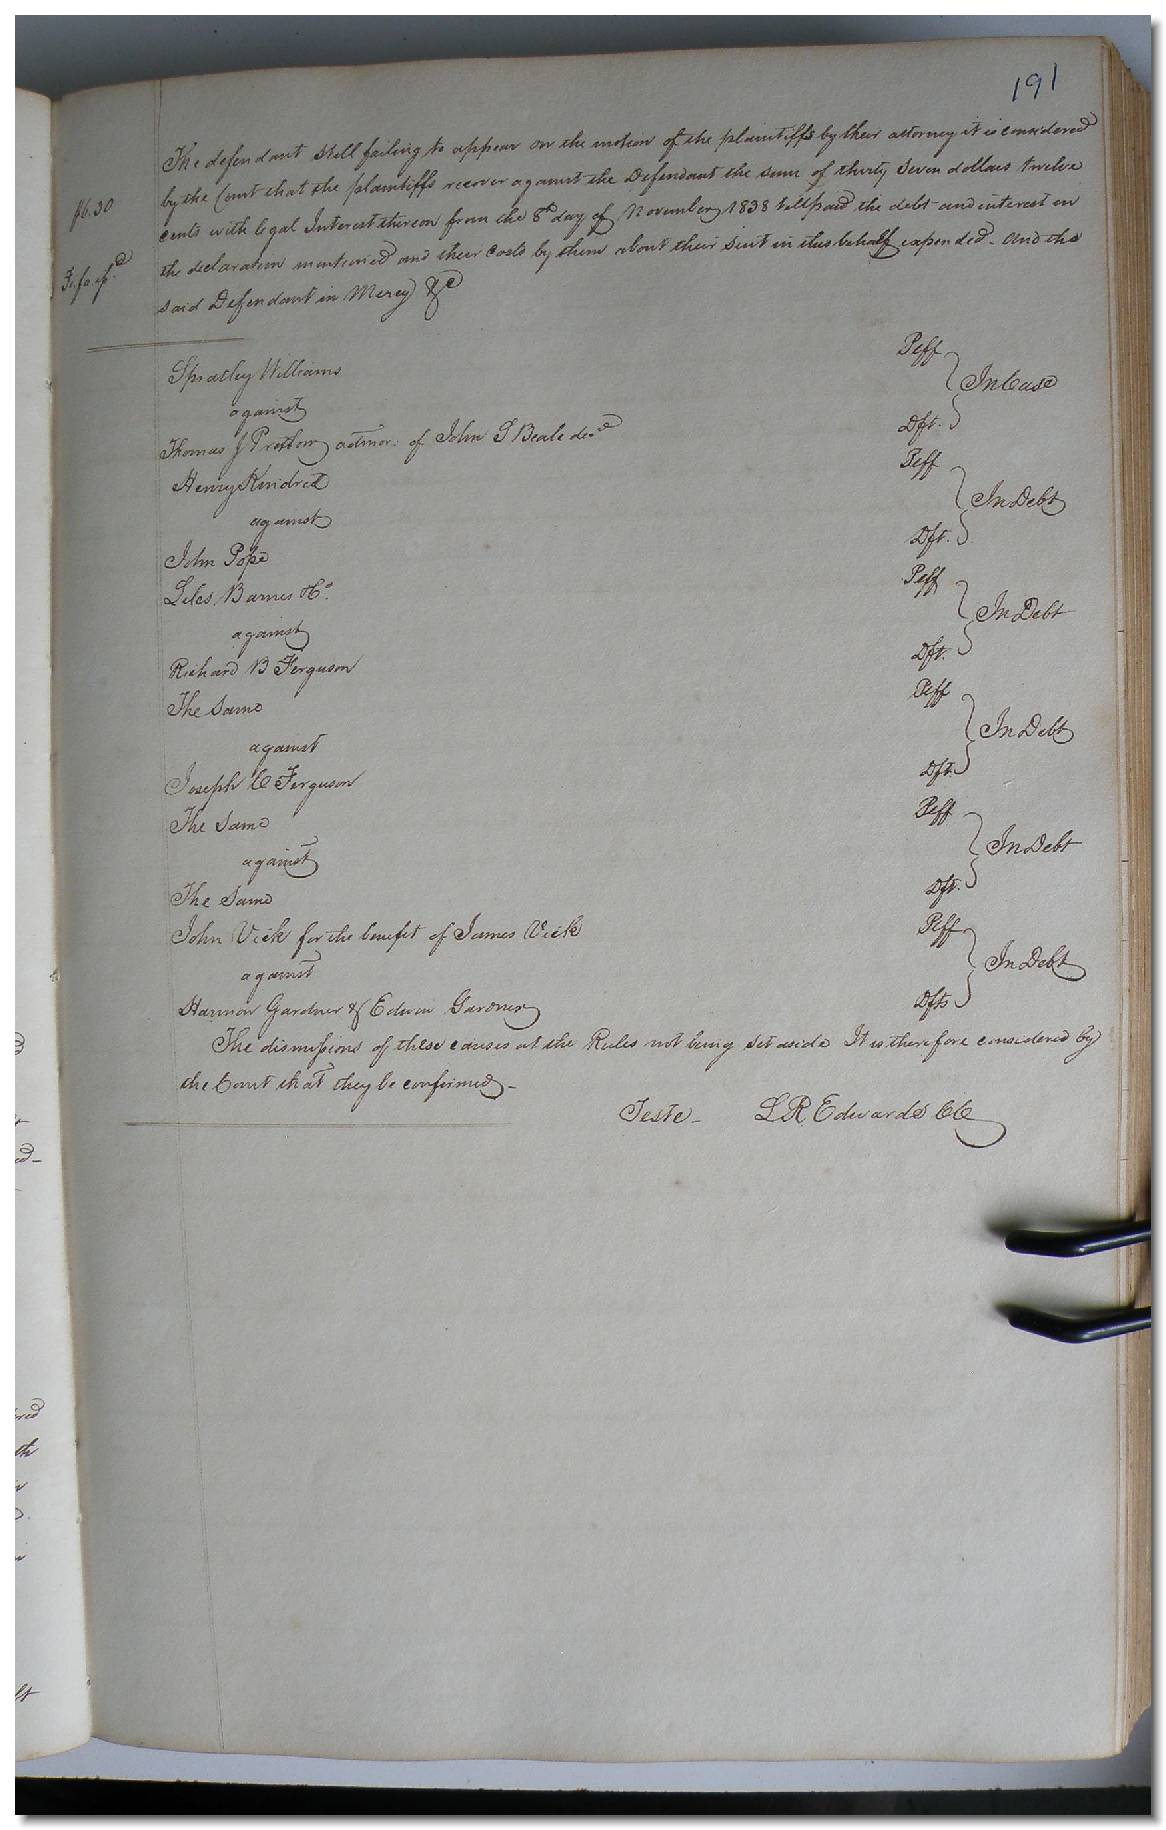 191
The defendant still failing to appear on the motion of the plaintiffs by their attorney it is considered
by the Court that the plaintiffs recover against the Defendant the sum of thirty Seven dollars twelve
$6.30
cents with legal Interest thereon from the 8th day of November 1838 till paid the debt and interest in
the declaration mentioned and their Costs by them about their Suit in this behalf expended. And the
Fi fa
said Defendant in Mercy &c
Spratley Williams Plff
against In Case
Thomas J Pretlow admor. of John S Beale decd Dft.
Henry Kindred Plff
against In Debt
John Pope Dft.
Liles Barnes & Co. Plff
against In Debt
Richard B Ferguson Dft.
The Same Plff
against In Debt
Joseph C Ferguson Dft.
The Same Plff
against In Debt
The Same Dft.
John Vick for the benefit of James Vick Plff
against In Debt
Harmon Gardner & Edwin Gardner Dfts
The dismissions of these causes at the Rules not being Set aside It is therefore considered by
the Court that they be confirmed -
Teste - L R Edwards CC